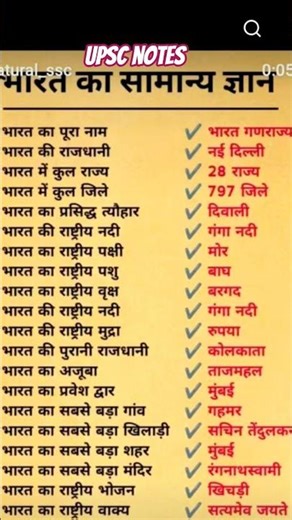 UPSC NOTES
atural_ssc 0:05
भारत का सामान्य ज्ञान
भारत का पूरा नाम ✓ भारत गणराज्य
भारत की राजधानी ✓ नई दिल्ली
भारत में कुल राज्य ✓ 28 राज्य
भारत में कुल जिले ✓ 797 जिले
भारत का प्रसिद्ध त्यौहार ✓ दिवाली
भारत की राष्ट्रीय नदी ✓ गंगा नदी
भारत का राष्ट्रीय पक्षी ✓ मोर
भारत का राष्ट्रीय पशु ✓ बाघ
भारत का राष्ट्रीय वृक्ष ✓ बरगद
भारत की राष्ट्रीय नदी ✓ गंगा नदी
भारत की राष्ट्रीय मुद्रा ✓ रुपया
भारत की पुरानी राजधानी ✓ कोलकाता
भारत का अजूबा ✓ ताजमहल
भारत का प्रवेश द्वार ✓ मुंबई
भारत का सबसे बड़ा गांव ✓ गहमर
भारत का सबसे बड़ा खिलाड़ी ✓ सचिन तेंदुलकर
भारत का सबसे बड़ा शहर ✓ मुंबई
भारत का सबसे बड़ा मंदिर ✓ रंगनाथस्वामी
भारत का राष्ट्रीय भोजन ✓ खिचड़ी
भारत का राष्ट्रीय वाक्य ✓ सत्यमेव जयते